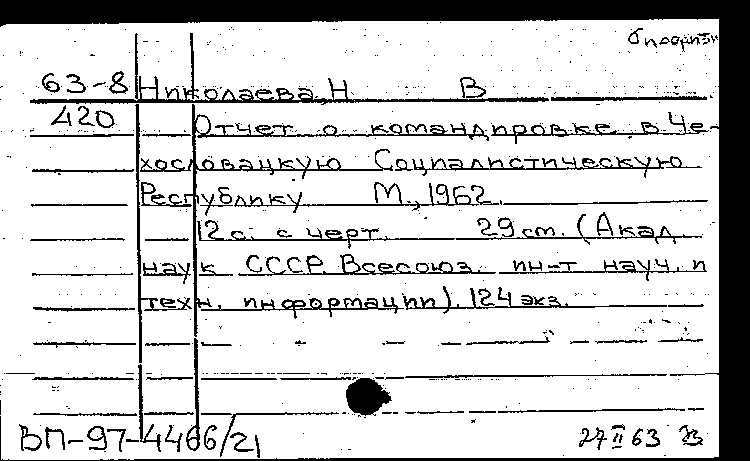 63-8 Николаева, Н В
420 Отчет о командировке в Че-
хословацкую Социалистическую
Республику М., 1962.
12 с. с черт. 29 см. (Акад.
наук СССР. Всесоюз. ин-т науч. и
техн. информации). 124 экз.
ВП-97-4466/21 27 II 63